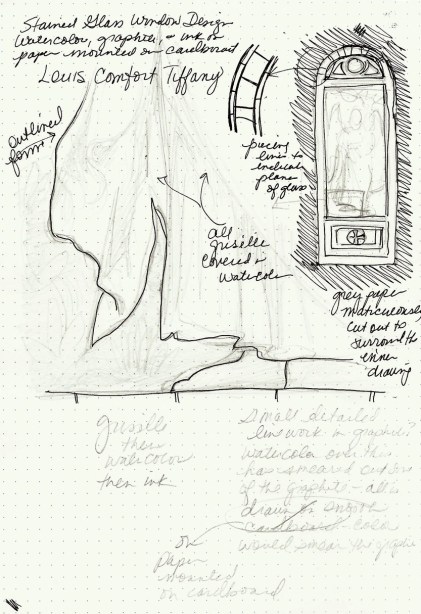 Stained Glass Window Design
Watercolor, graphite, + ink on
paper mounted on cardboard
Louis Comfort Tiffany
outlined
form
piecing
lines to
indicate
plane
of glass
all
griselle
covered in
watercolor
grey paper
maticulously
cut out to
surround the
inner
drawing
griselle
then
watercolor
then ink
Small detailed
line work in graphite?
Watercolor over this
has smeared
of the graphite - all is
drawn on smooth
cardboard color
would smear the graphite
on
paper
mounted
on cardboard